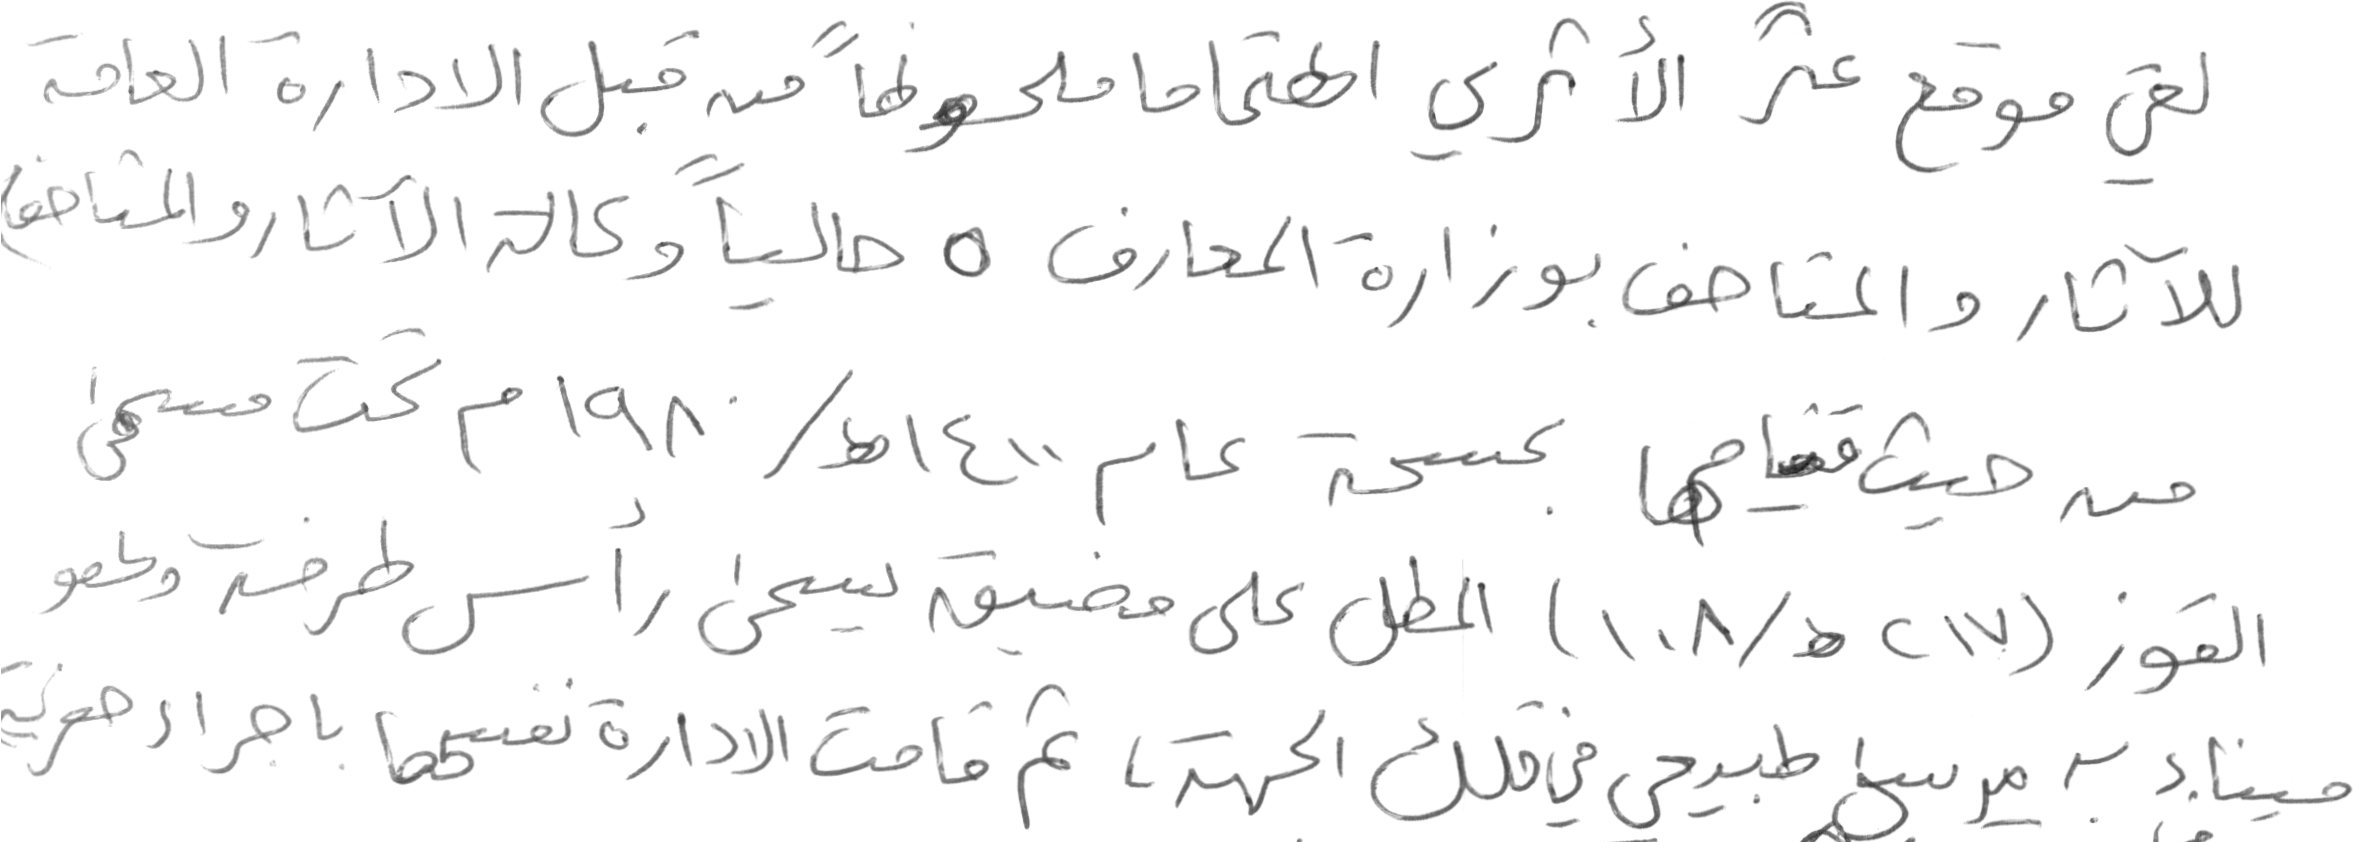 لقي موقع عثّر الأثري اهتماما ملحوظاً من قبل الادارة العامة
للآثار والمتاحف بوزارة المعارف ٥ حالياً وكالة الآثار والمتاحف)
من حيث قيامها بمسحة عام ١٤١١ه/ ١٩٨٠م تحت مسمى
القوز (٢١٧ه/١٠٨) المطل على مضيق يسمى رأس طرفة وهو
ميناء به مرسى طبيعي في تلك الجهة، ثم قامت الادارة نفسها باجراء